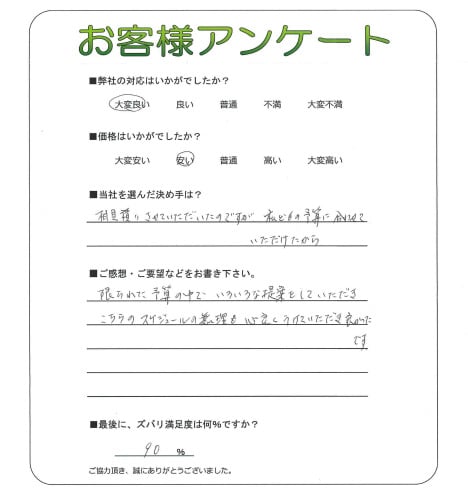 お客様アンケート
■弊社の対応はいかがでしたか?
大変良い 良い 普通 不満 大変不満
■価格はいかがでしたか?
大変安い 安い 普通 高い 大変高い
■当社を選んだ決め手は?
相見積りさせていただいたのですが 私どもの予算に合わせて
いただけたから
■ご感想・ご要望などをお書き下さい。
限られた予算の中でいろいろな提案をしていただき
こちらのスケジュールの無理も心定くうけていただき良かった
です
■最後に、ズバリ満足度は何%ですか?
90 %
ご協力頂き、誠にありがとうございました。